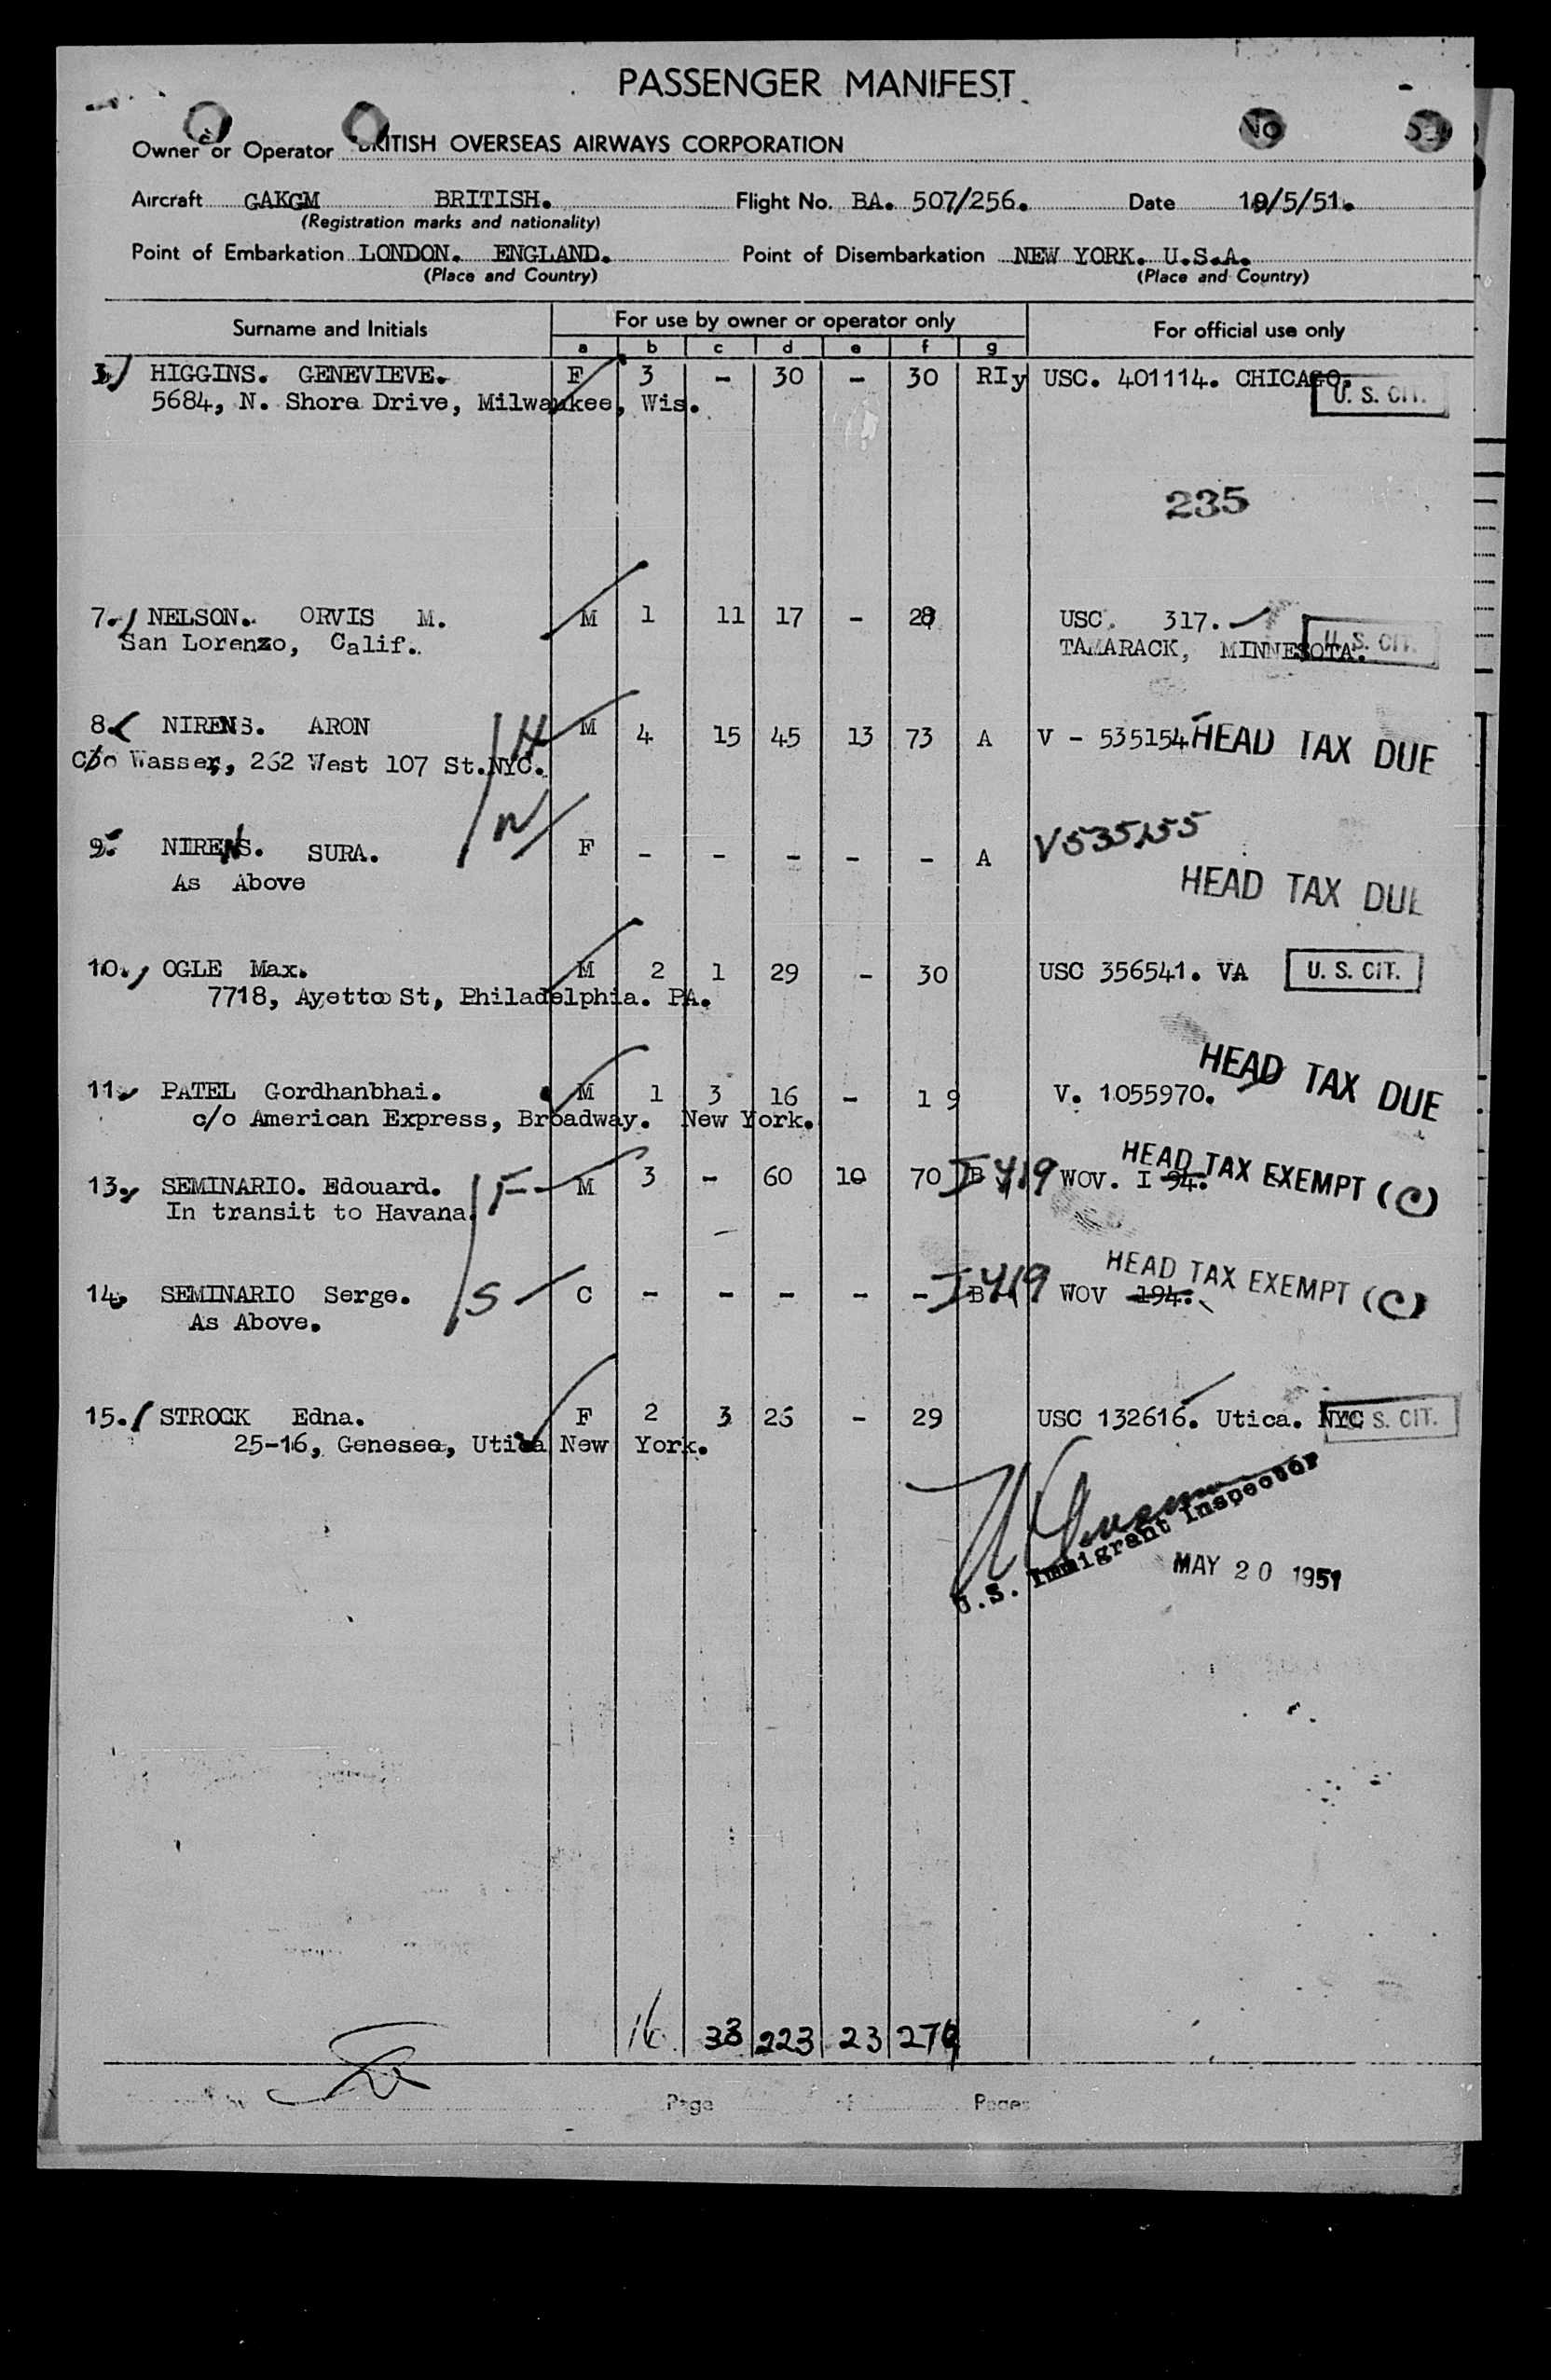 PASSENGER MANIFEST
Owner or Operator BRITISH OVERSEAS AIRWAYS CORPORATION
No
Aircraft GAKGM BRITISH. Flight No. BA. 507/256. Date 19/5/51.
(Registration marks and nationality)
Point of Embarkation LONDON. ENGLAND. Point of Disembarkation NEW YORK. U.S.A.
(Place and Country) (Place and Country)
Surname and Initials For use by owner or operator only For official use only
a b c d e f g
HIGGINS. GENEVIEVE. F 3 - 30 - 30 RIy USC. 401114. CHICAGO.
5684, N. Shore Drive, Milwaukee, Wis. U. S. CIT.
235
7. NELSON. ORVIS M. M 1 11 17 - 28 USC. 317.
San Lorenzo, Calif. TAMARACK, MINNESOTA. U. S. CIT.
8. NIRENS. ARON H M 4 15 45 13 73 A V - 535154 HEAD TAX DUE
c/o Wasser, 262 West 107 St.NYC.
9. NIRENS. SURA. W F - - - - - A V535155
As Above HEAD TAX DUE
10. OGLE Max. M 2 1 29 - 30 USC 356541. VA U. S. CIT.
7718, Ayetto St, Philadelphia. PA.
11. PATEL Gordhanbhai. M 1 3 16 - 19 V. 1055970. HEAD TAX DUE
c/o American Express, Broadway. New York.
13. SEMINARIO. Edouard. F M 3 - 60 10 70 B I 419 WOV. I 94. HEAD TAX EXEMPT (C)
In transit to Havana.
14. SEMINARIO Serge. S C - - - - - B I 419 WOV 194. HEAD TAX EXEMPT (C)
As Above.
15. STROCK Edna. F 2 3 26 - 29 USC 132616. Utica. NYC U. S. CIT.
25-16, Genesee, Utica New York.
U.S. Immigrant Inspector
MAY 20 1951
16 33 223 23 279
Page of Pages